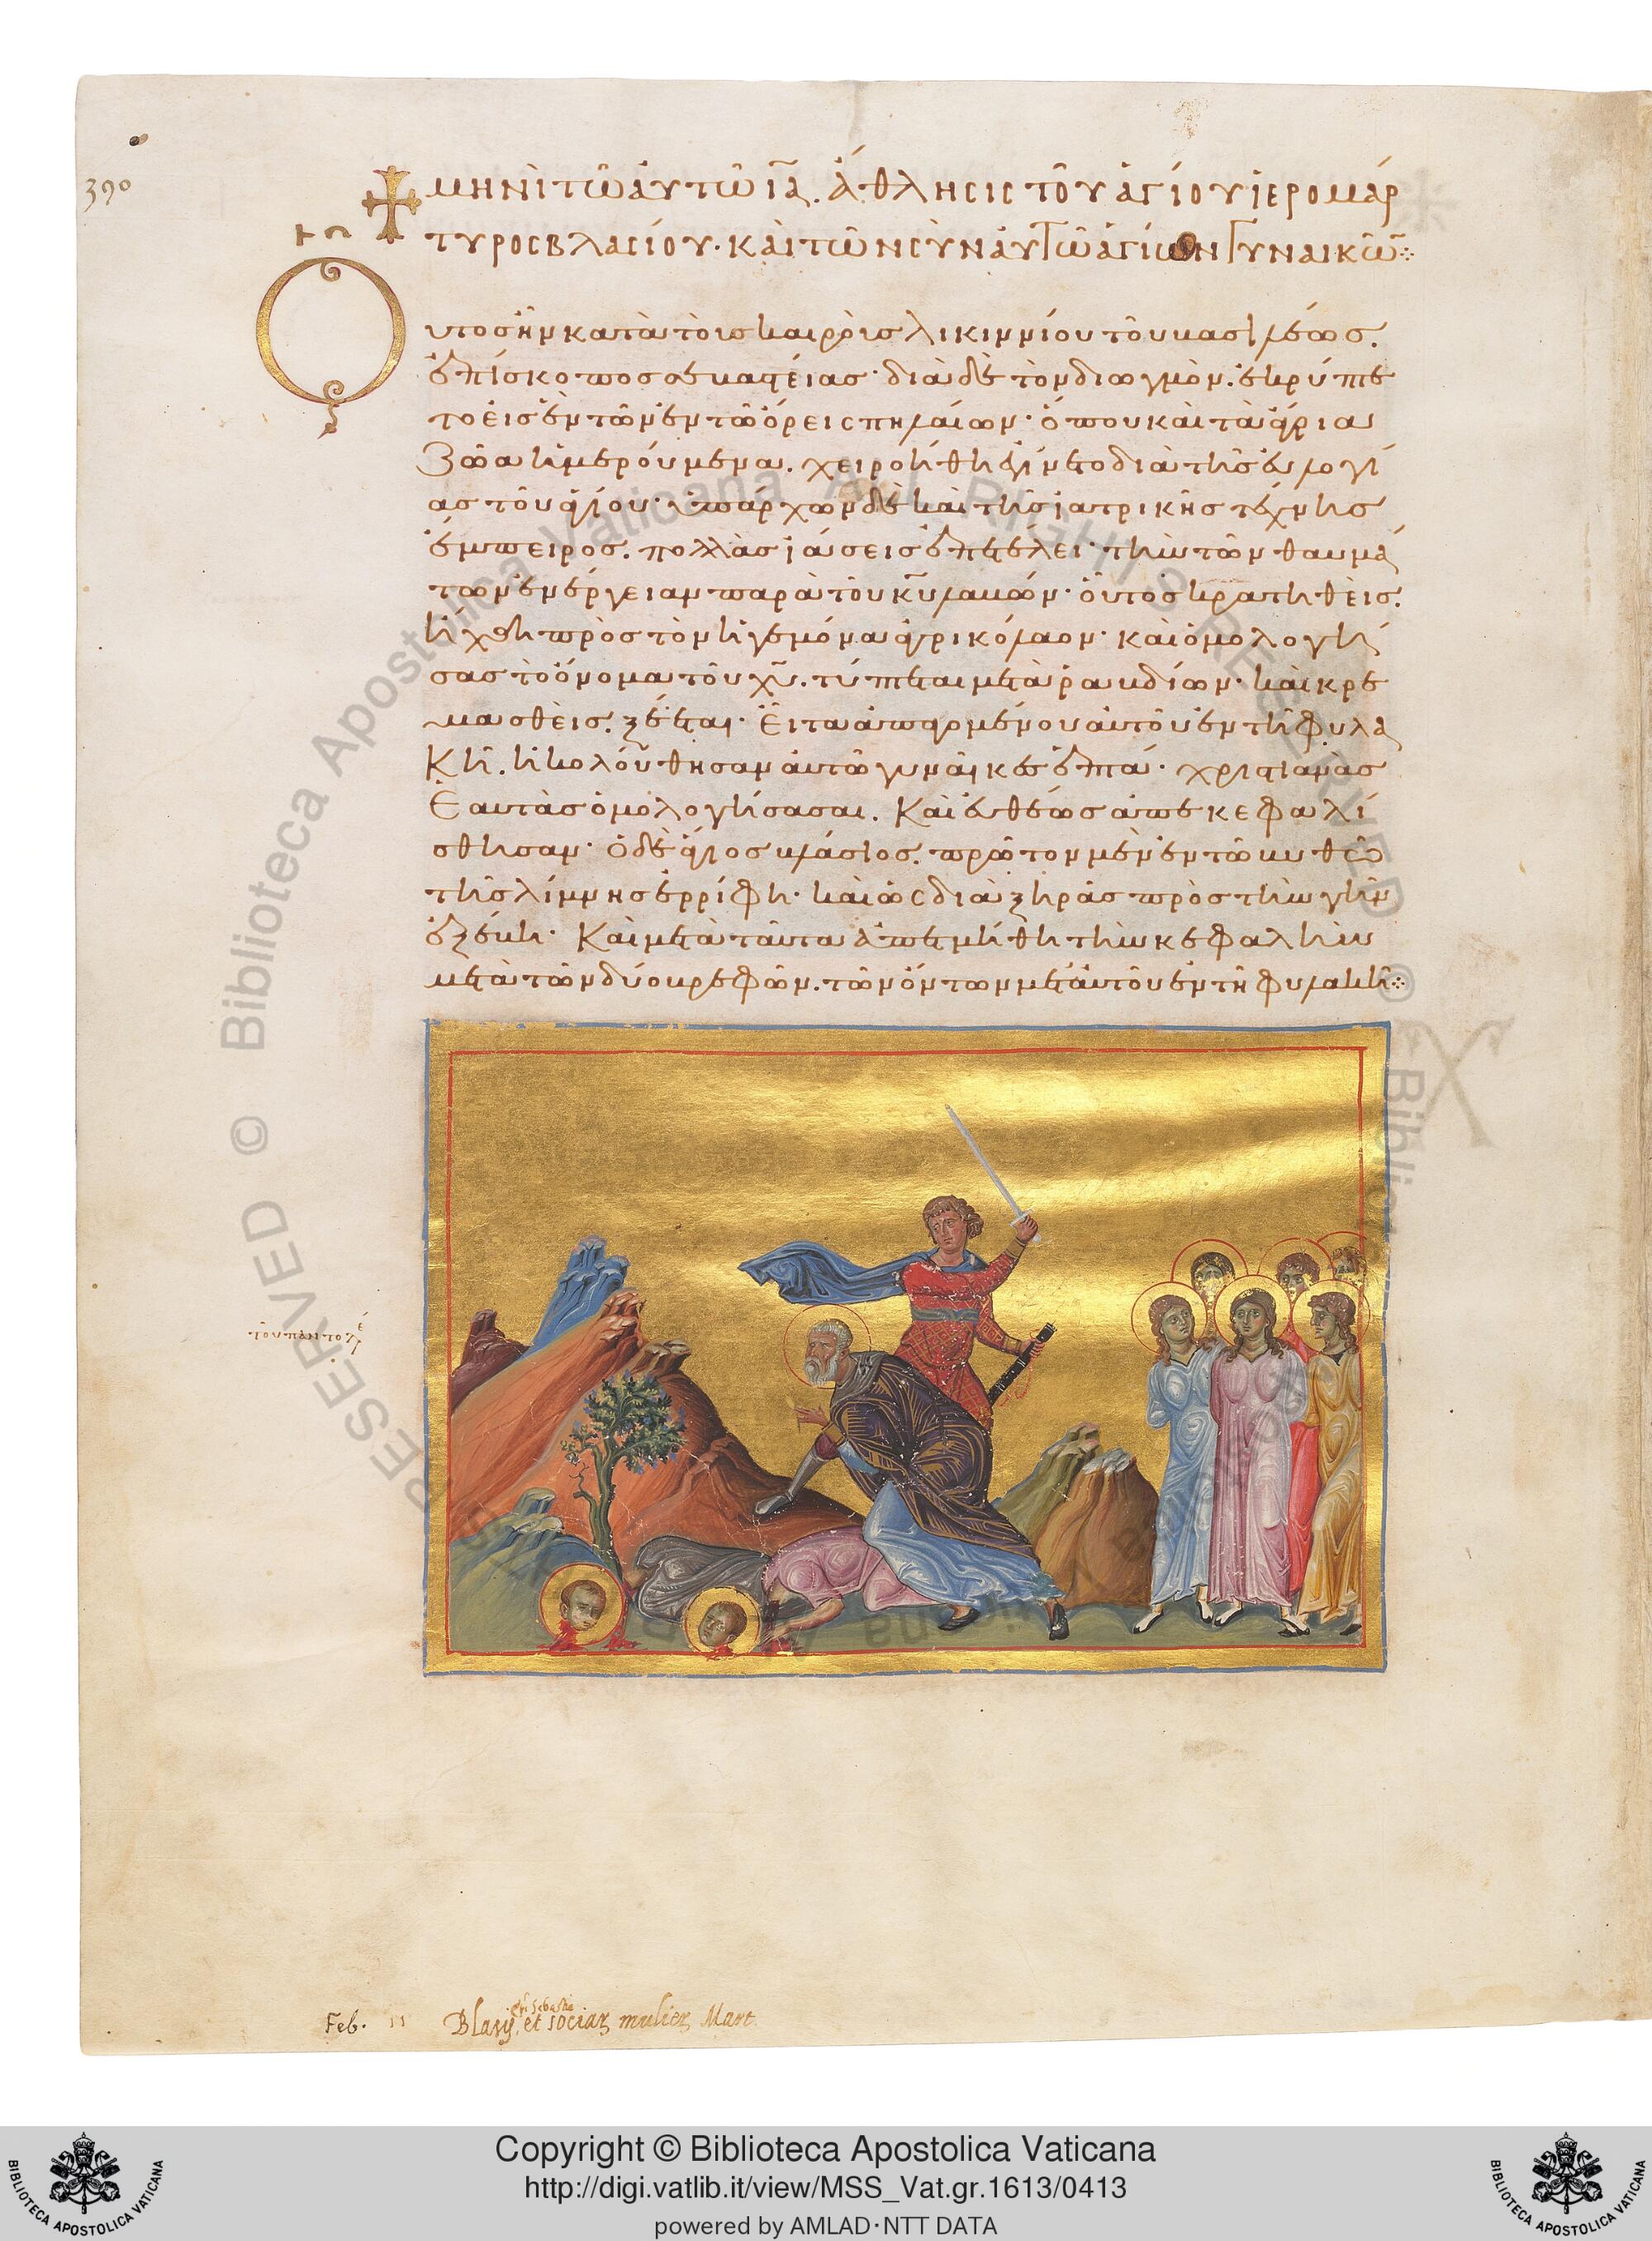 390
μηνὶ τῶ αὐτῶ ῑᾱ. ἄθλησις τοῦ ἁγίου ἱερομάρ
τυρος βλασίου· καὶ τῶν σὺν αὐτῶ ἁγίων γυναικῶ̅:
Οὗτος ἦν κατὰ τοὺς καιροὺς λικιννίου τοῦ βασιλέως.
ἐπίσκοπος σεβαστείας· διὰ δὲ τὸν διωγμὸν. ἐκρύπτε
το εἰς ἓν τῶν ἐν τῶ ὄρει σπηλαίων· ὅπου καὶ τὰ ἄγρια
ζῶα ἡμερούμενα. χειροήθη ἐγίνετο διὰ τῆς εὐλογί
ας τοῦ ἁγίου· ὑπάρχων δὲ καὶ τῆς ἰατρικῆς τέχνης
ἔμπειρος. πολλὰς ἰάσεις ἐπετέλει· τὴν τῶν θαυμά
των ἐνέργειαν παρὰ τοῦ κ̅υ̅ λαβών· οὗτος κρατηθεὶς.
ἤχθη πρὸς τὸν ἡγεμόνα ἀγρικόλαον· καὶ ὁμολογή
σας τὸ ὄνομα τοῦ χ̅υ̅. τύπτεται μετὰ ῥαβδίων· καὶ κρε
μασθεὶς. ξέεται· Εἶτα ἀπαγομένου αὐτοῦ ἐν τῆ φυλα
κῆ. ἠκολούθησαν αὐτῶ γυναῖκες ἑπτά· χριστιανὰς
Ἑαυτὰς ὁμολογήσασαι. Καὶ εὐθέως ἀπεκεφαλί
σθησαν· Ὁ δὲ ἅγιος βλάσιος. πρῶτον μὲν ἐν τῶ βυθῶ
τῆς λίμνης ἐρρίφη· καὶ ὡς διὰ ξηρᾶς πρὸς τὴν γῆν
ἐξέβη· Καὶ μετὰ ταῦτα ἀπετμήθη τὴν κεφαλὴν
μετὰ τῶν δύο βρεφῶν. τῶν ὄντων μετ' αὐτοῦ ἐν τῆ φυλακῆ:
Feb. 11 Blasij epi Sebastiae et sociar mulier Mart.
Biblioteca Apostolica Vaticana ALL RIGHTS RESERVED ©
Copyright © Biblioteca Apostolica Vaticana
http://digi.vatlib.it/view/MSS_Vat.gr.1613/0413
powered by AMLAD·NTT DATA
BIBLIOTECA APOSTOLICA VATICANA
BIBLIOTECA APOSTOLICA VATICANA